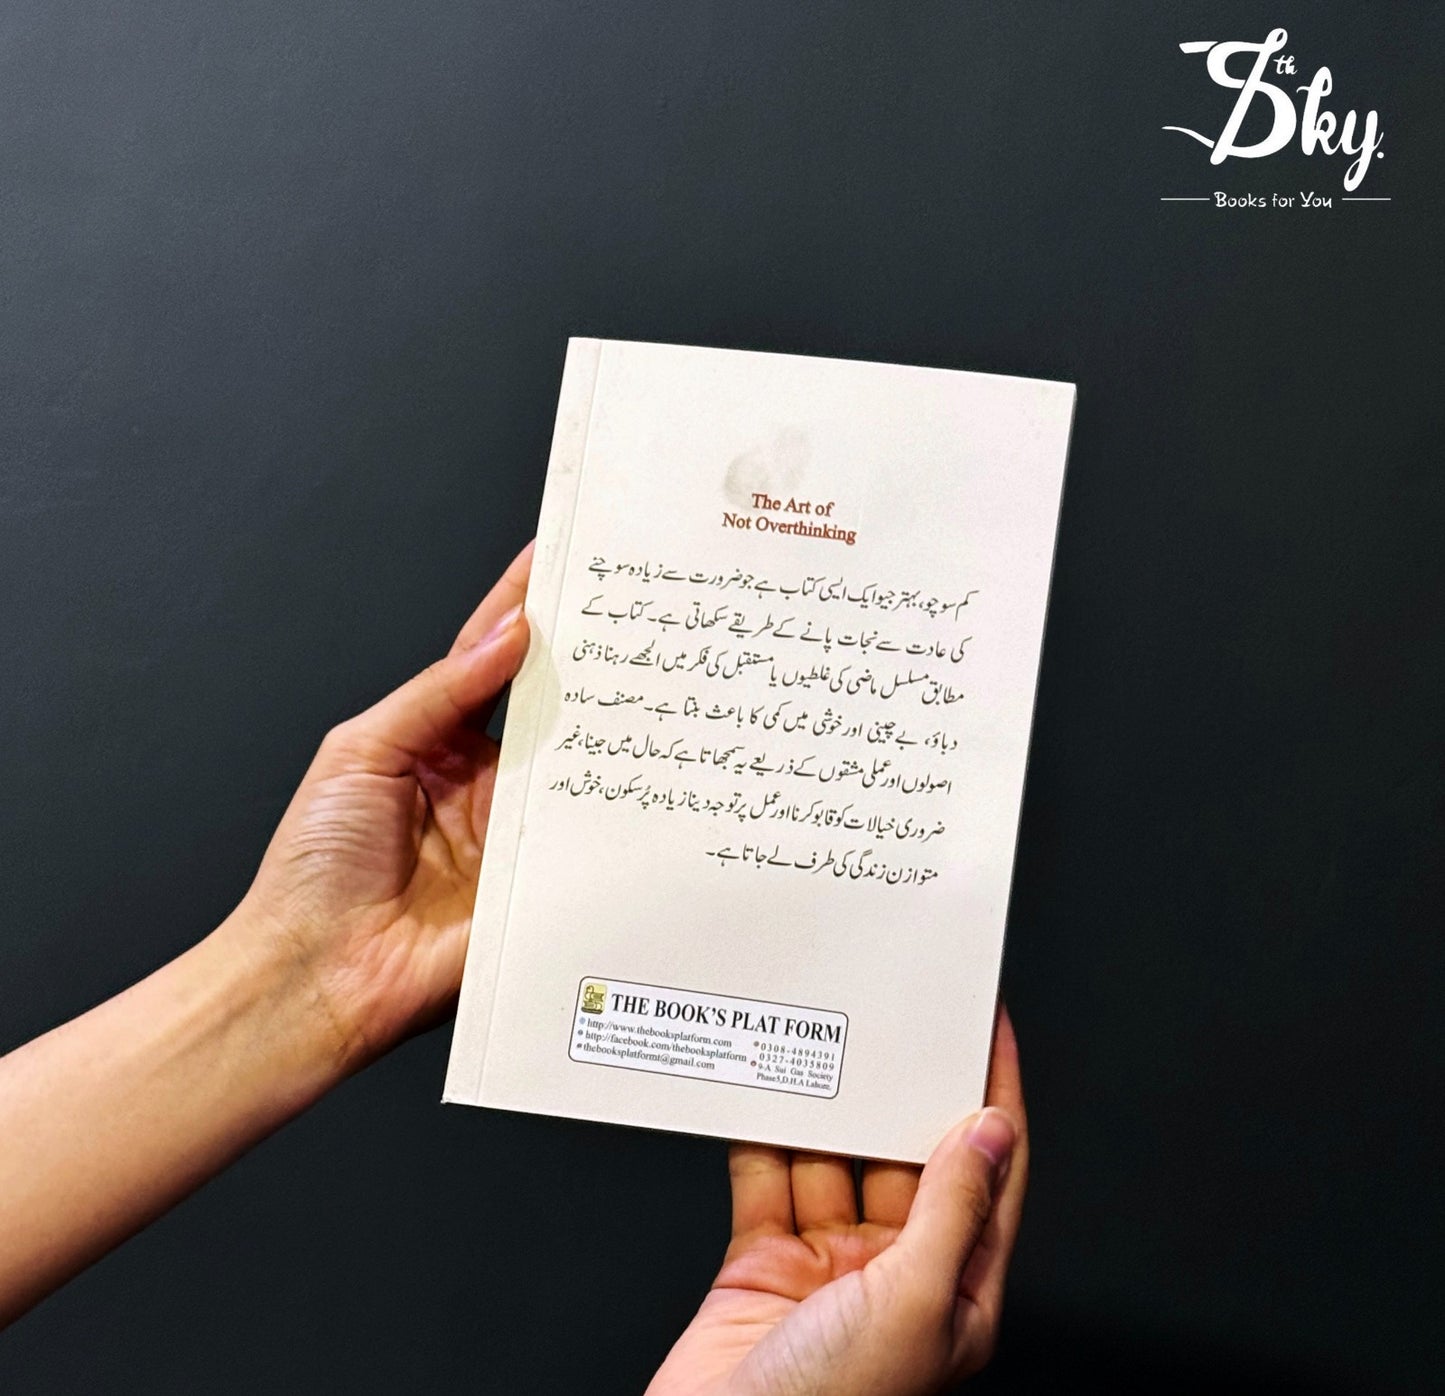 8th Sky.
Books for You
The Art of
Not Overthinking
کم سوچو، بہتر جیو ایک ایسی کتاب ہے جو ضرورت سے زیادہ سوچنے
کی عادت سے نجات پانے کے طریقے سکھاتی ہے۔ کتاب کے
مطابق مسلسل ماضی کی غلطیوں یا مستقبل کی فکر میں الجھے رہنا ذہنی
دباؤ، بے چینی اور خوشی میں کمی کا باعث بنتا ہے۔ مصنف سادہ
اصولوں اور عملی مشقوں کے ذریعے یہ سمجھاتا ہے کہ حال میں جینا، غیر
ضروری خیالات کو قابو کرنا اور عمل پر توجہ دینا زیادہ پُرسکون، خوش اور
متوازن زندگی کی طرف لے جاتا ہے۔
THE BOOK'S PLAT FORM
http://www.thebooksplatform.com
http://facebook.com/thebooksplatform
thebooksplatformt@gmail.com
0308-4894391
0327-4035809
9-A Sui Gas Society
Phase5,D.H.A Lahore.